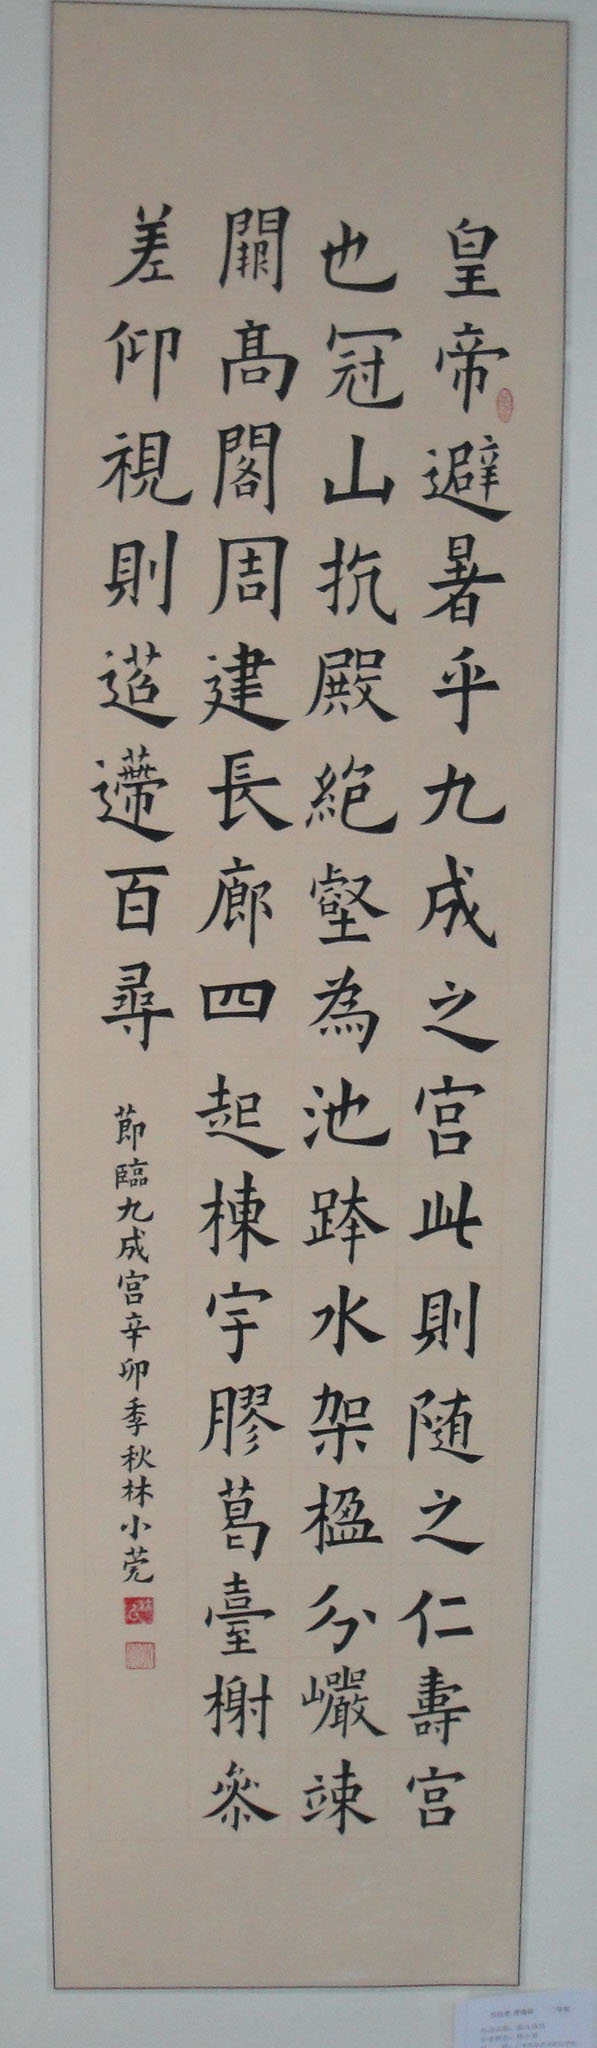 皇帝避暑乎九成之宮此則随之仁壽宮
也冠山抗殿絶壑為池跨水架楹分巖竦
闕高閣周建長廊四起棟宇膠葛臺榭叅
差仰視則迢遰百尋
節臨九成宮辛卯季秋林小莞